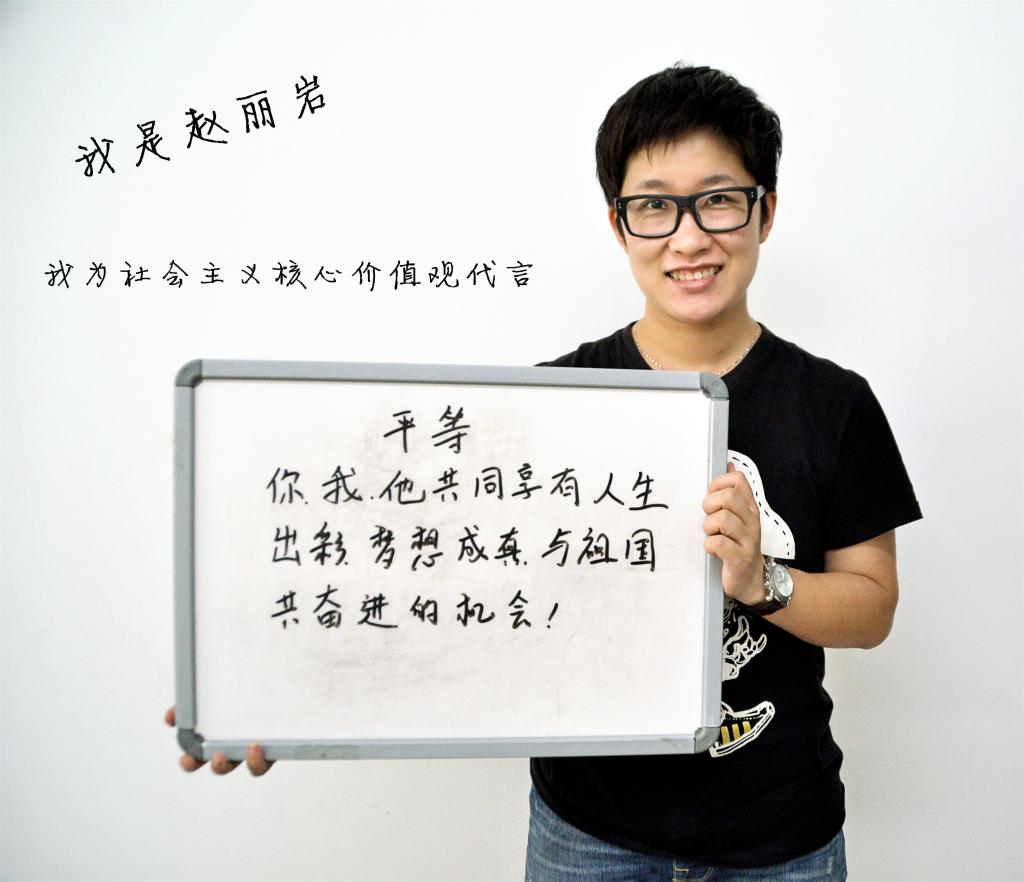 我是赵丽岩
我为社会主义核心价值观代言
平等
你、我、他共同享有人生
出彩、梦想成真、与祖国
共奋进的机会!